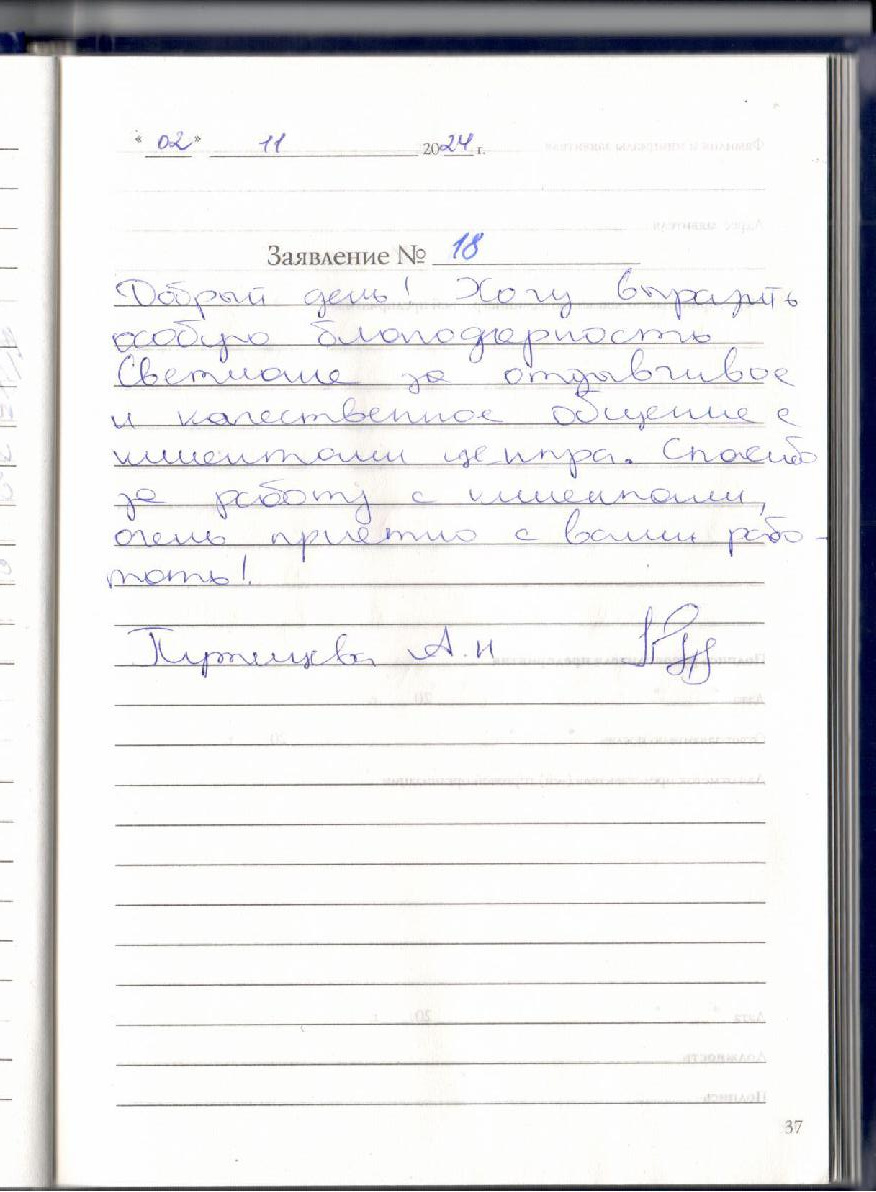 "02" 11 2024 г.
Заявление № 18
Добрый день! Хочу выразить
особую благодарность
Светлане за отзывчивое
и качественное общение с
клиентами центра. Спасибо
за работу с клиентами,
очень приятно с вами рабо-
тать!
А.Н
37